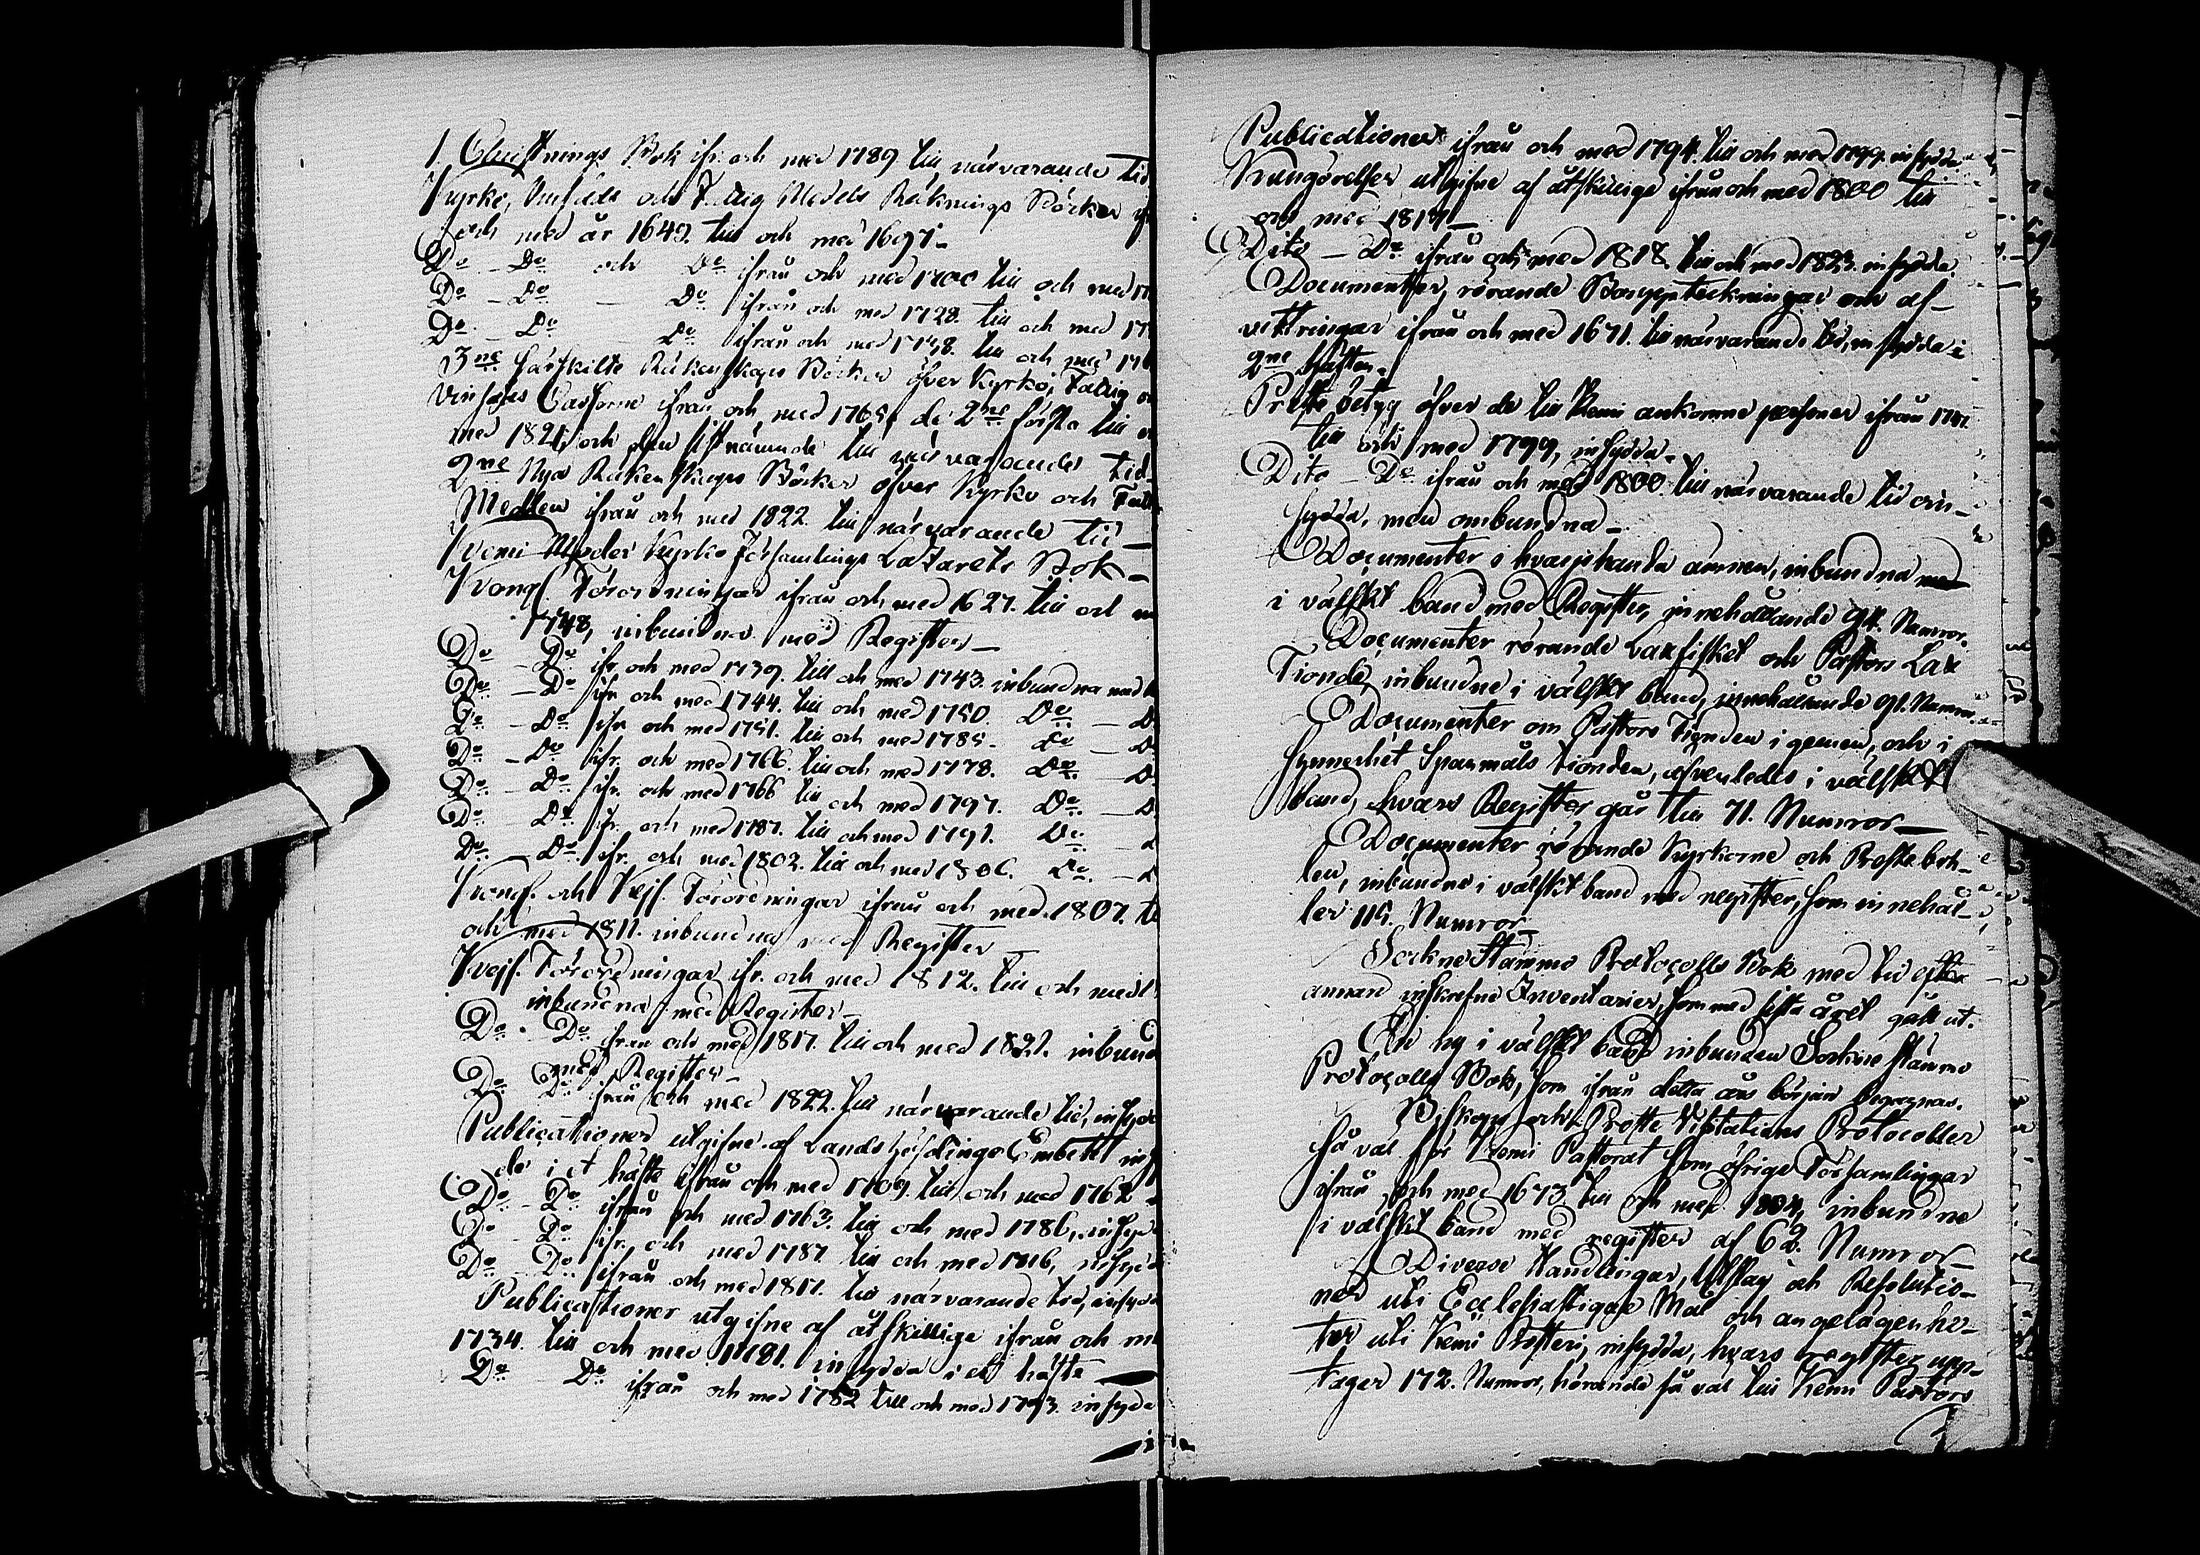 1. Bok ifr. och med 1789 till närvarande tid
Kyrko, och Fattig Medels Räknings Böcker if
och med år 1649. till och med 1697.
Do — Do och Do ifrån och med 1700 till och med 17
Do — Do — Do ifrån och med 1728. till och med 17
Do — Do Do ifrån och med 1748. till och med 176
3ne Särskilte Räkenskaps Böcker öfver Kyrko, Fattig o
Casforne ifrån och med 1765, de 2ne första till o
med 1821, och den sistnämnde till närvarande tid
2ne Nya Räkenskaps Böcker öfver Kyrko och Fatt
Medlen ifrån och med 1822. till närvarande tid —
Kemi Moder Kyrko Församlings Lazarets Bok —
Kongl. Förordningar ifrån och med 1627. till och m
1748, inbundna med Register —
Do — Do ifr. och med 1739. till och med 1743. inbundna med
Do — Do ifr. och med 1744. till och med 1750. Do — D
Do — Do ifr. och med 1751. till och med 1785. Do — D
Do — Do ifr. och med 1766. till och med 1778. Do — D
Do — Do ifr. och med 1766 till och med 1797. Do — D
Do — Do ifr. och med 1787. till och med 1791. Do —
Do — Do ifr. och med 1802. till och med 1806. Do —
Kongl. och Kejs. Förordningar ifrån och med 1807. ti
och med 1811. inbundna med Register —
Kejs. Förordningar ifr. och med 1812. till och med 1
inbundna med Register —
Do — Do ifrån och med 1817. till och med 1821. inbund
med Register —
Do Do ifrån och med 1822. till närvarande tid, insyd
Publicationer utgifne af Landshöfdinge Embetet insy
de i et häfte ifrån och med 1709. till och med 1762
Do — Do ifrån och med 1763. till och med 1786, insyd
Do — Do ifr. och med 1787. till och med 1816, insyd
Do — Do ifrån och med 1817. till närvarande tid, insyd
Publicationer utgifne af åtskillige ifrån och me
1734. till och med 1781. insydda i et häfte —
Do — Do ifrån och med 1782 till och med 1793. insyda
Publicationer ifrån och med 1794. till och med 1799. insydda
Kungörelser utgifne af åtskillige ifrån och med 1800 till
och med 1817 —
Dito — Do ifrån och med 1818. till och med 1823. insydda.
Documenter, rörande Bouppteckningar och af-
vittringar ifrån och med 1671. till närvarande tid, insydda i
2ne häften.
Preste betyg öfver de till Kemi ankomne personer ifrån 1741
till och med 1799, insydda.
Dito — Do ifrån och med 1800. till närvarande tid oin-
sydda, men ombundna —
Documenter i hvarjehanda ämnen, inbundna med
i välskt band med Register, innehållande 94. Numror.
Documenter rörande Laxfisket och Pastors Lax
Tionde, inbundne i välskt band, innehållande 91. Numror
Documenter om Pastors Tionden i gemen, och i
synnerhet Spanmåls tionden, äfvenledes i välskt
band, hvars Register går till 71. Numror —
Documenter rörande Kyrkorne och Prestebolen,
len, inbundne i välskt band med register, som innehål-
ler 115. Numror —
Sockne Stämmo Protocolls Bok med tid efter
annan inskrefne Inventarier, som med sista året gått ut.
En ny i välskt band inbunden Sockne Stämmo
Protocolls Bok, som ifrån detta års början begagnas.
Biskops och Proste Visitations Protocoller
så väl för Kemi Pastorat som öfrige Församlingar
ifrån och med 1673 till och med 1804, inbundne
i välskt band med register af 62. Numror —
Diverse Handlingar, Utslag och Resolutio-
ner uti Ecclesiastique Mål och angelägenhe-
ter uti Kemi Prosteri, insydda, hvars register upp-
tager 172. Numror, hörande så väl till Kemi Pastors